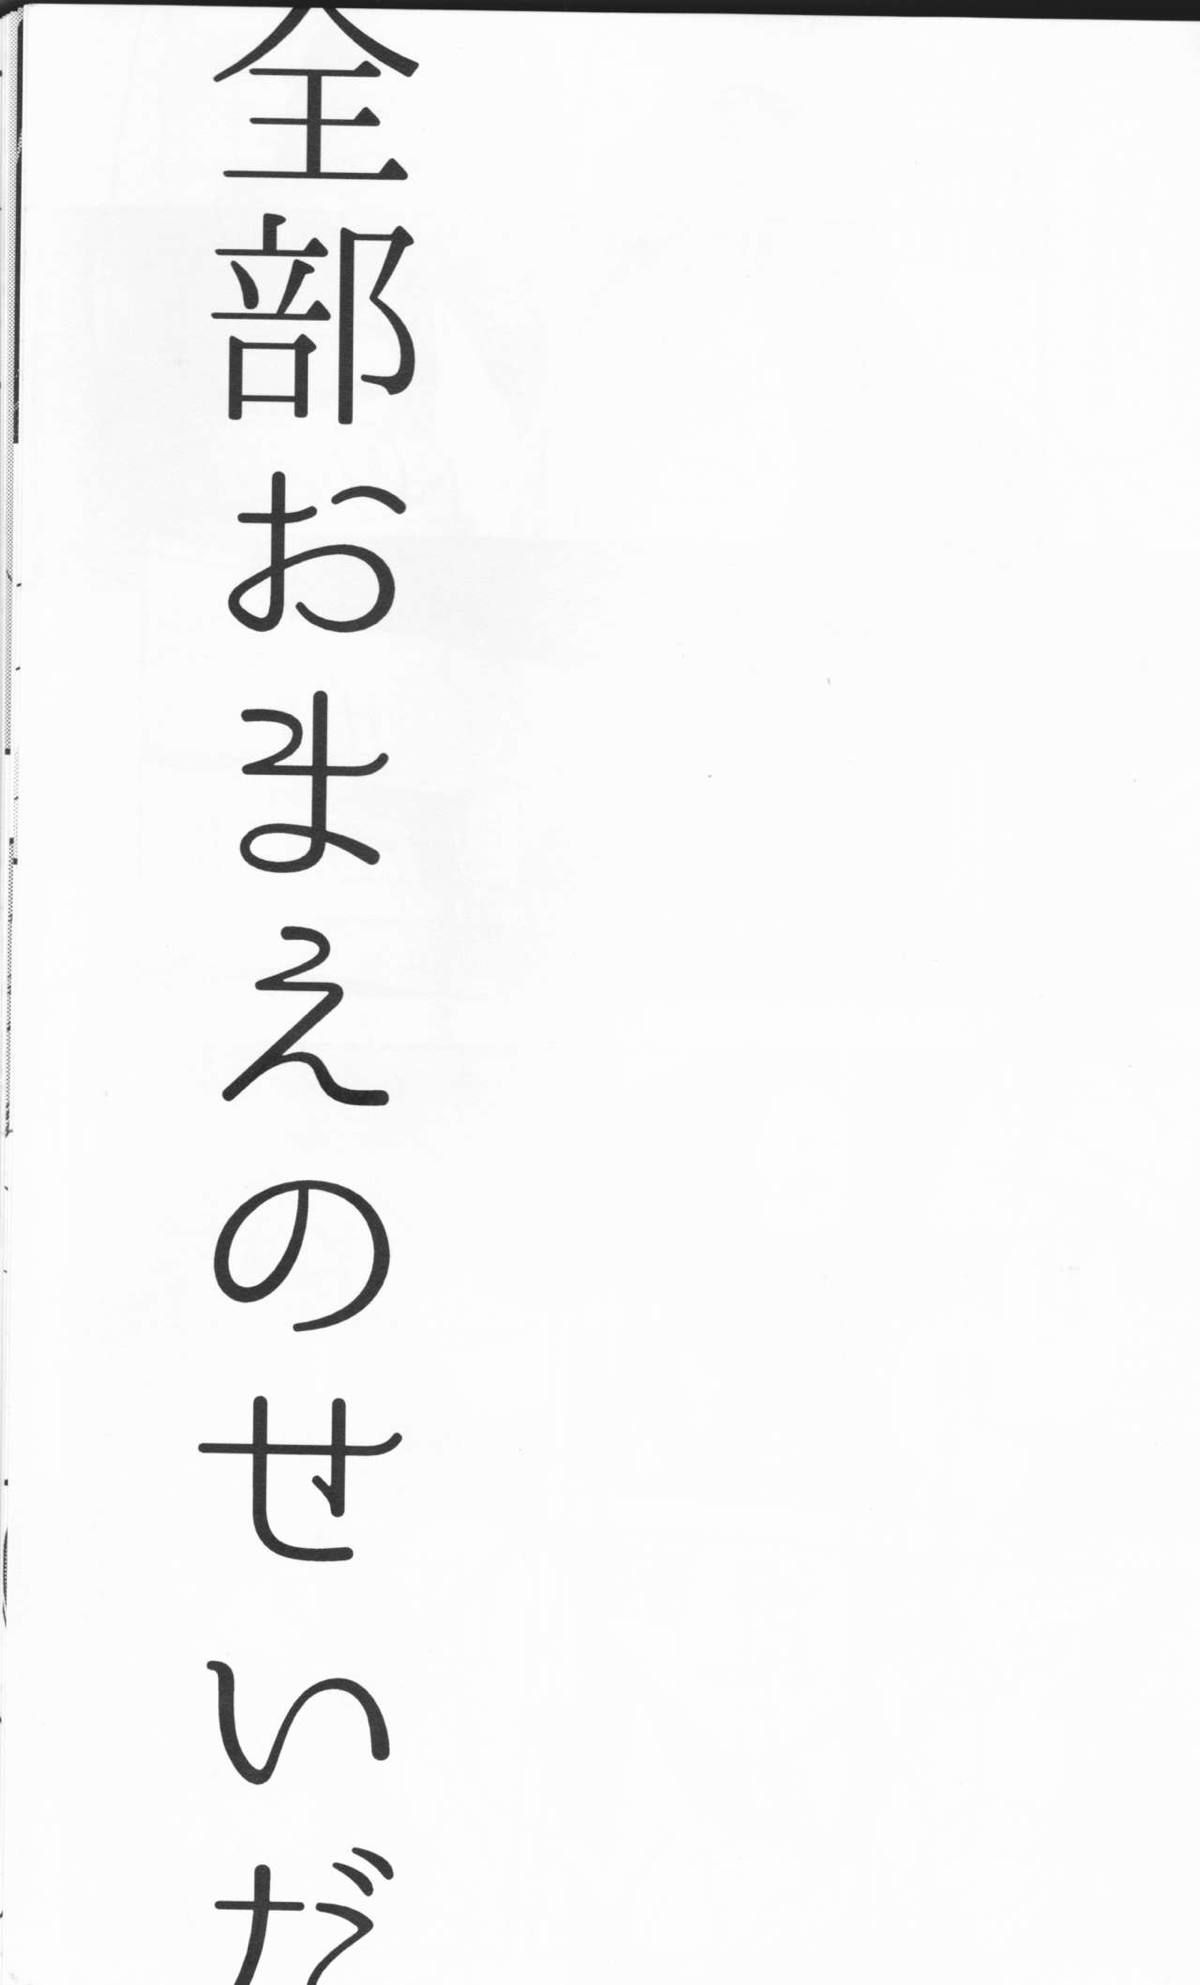 全部おまえのせいだ